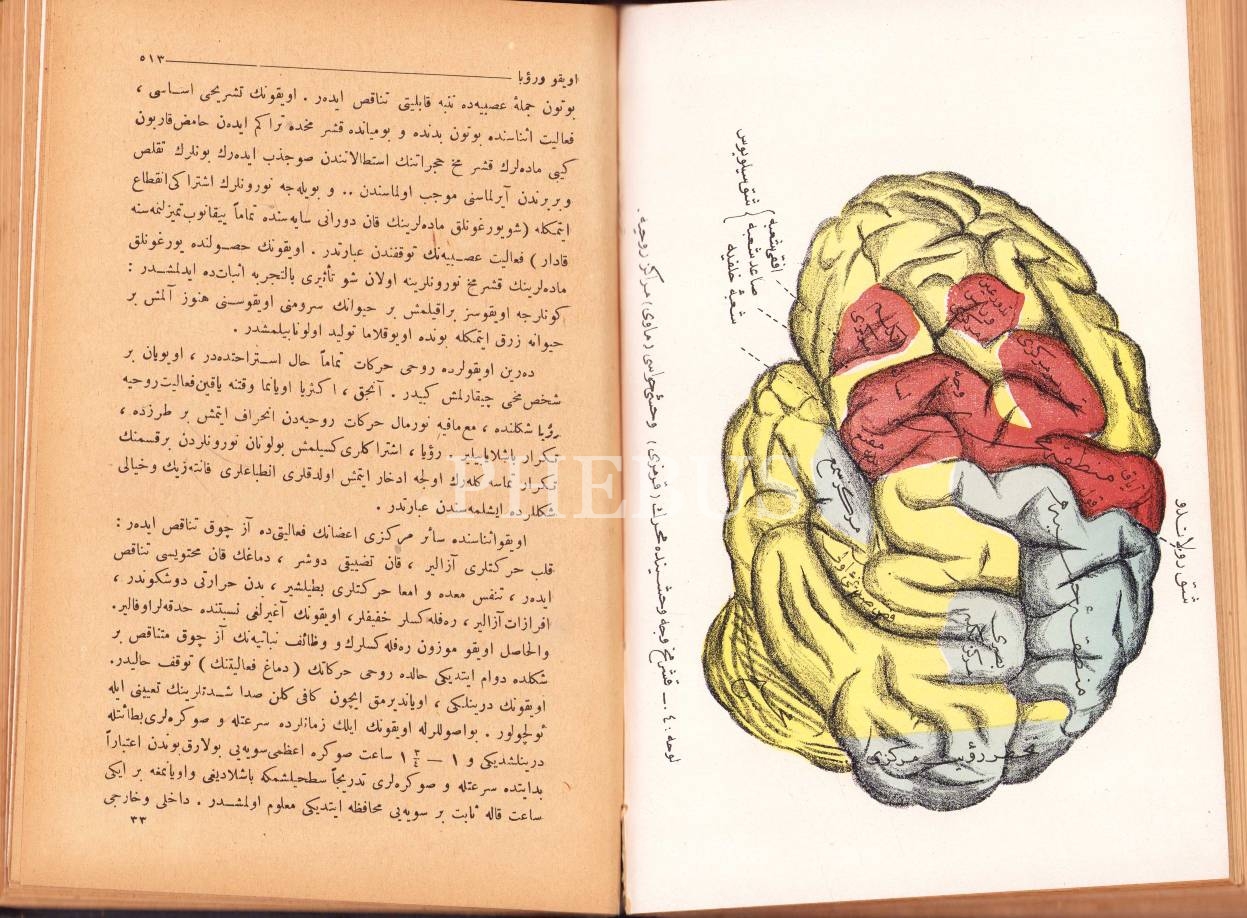 اويقو ورؤيا
٥١٣
بوتون جملهٔ عصبيه‌ده تنبه قابليتى تناقص ايدەر . اويقونك تشريحى اساسى ،
فعاليت اثناسنده بوتون بدنده و بوميانده قشر مخده تراكم ايدن حامض قاربون
كبى ماده‌لرك قشر مخ حجراتنك استطالاتندن صو جذب ايدەرك بونلرك تقلص
و بربرندن آيرلماسنى موجب اولماسندن .. و بويله‌جه نورونلرك اشتراكى انقطاع
ايتمكله (شو يورغونلق ماده‌لرينك قان دورانى سايه‌سنده تماماً ييقانوب تميزلنمه‌سنه
قادار ) فعاليت عصبيه‌نك توقفندن عبارتدر . اويقونك حصولنده يورغونلق
ماده‌لرينك قشر مخ نورونلرينه اولان شو تأثيرى بالتجربه اثبات‌ده ايدلمشدر :
كونلرجه اويقوسز براقيلمش بر حيوانك سرومنى اويقوسنى هنوز آلمش بر
حيوانه زرق ايتمكله بونده اويوقلاما توليد اولونابيلمشدر .
دەرين اويقولرده روحى حركات تماماً حال استراحتده‌در ، اويويان بر
شخص مخى چيقارلمش كبيدر . آنجق ، اكثريا اويانما وقتنه ياقين فعاليت روحيه
رؤيا شكلنده ، مع‌مافيه نورمال حركات روحيه‌دن انحراف ايتمش بر طرزده ،
تكرار باشلايابيلير . رؤيا ، اشتراكلرى كسيلمش بولونان نورونلردن برقسمنك
تكرار تماسه كله‌رك اولجه ادخار ايتمش اولدقلرى انطباعلرى فانته‌زيك وخيالى
شكللرده ايشلمه‌سندن عبارتدر .
اويقو اثناسنده سائر مركزى اعضانك فعاليتى‌ده آز چوق تناقص ايدەر :
قلب حركتلرى آزالير ، قان تضييقى دوشر ، دماغك قان محتويسى تناقص
ايدەر ، تنفس معده و امعا حركتلرى بطيلشير ، بدن حرارتى دوشكوندر ،
افرازات آزالير ، رەفله‌كسلر خفيفلر، اويقونك آغيرلغى نسبتنده حدقه‌لر اوفالير.
والحاصل اويقو موزون رەفله‌كسلرك و وظائف نباتيه‌نك آز چوق متناقص بر
شكلده دوام ايتديكى حالده روحى حركاتك ( دماغ فعاليتنك ) توقف حاليدر.
اويقونك درينلكى ، اوياندیرمق ايچون كافى كلن صدا شدتلرينك تعيينى ايله
ئولچولور . بواصوللرله اويقونك ايلك زمانلرده سرعتله و صوكره‌لرى بطائتله
درينلشديكى و ١ — ١ ٣/٤ ساعت صوكره اعظمى سويه‌يى بولارق بوندن اعتباراً
بدايتده سرعتله و صوكره‌لرى تدريجاً سطحيلشمكه باشلاديغى واويانمغه بر ايكى
ساعت قاله ثابت بر سويه‌يى محافظه ايتديكى معلوم اولمشدر . داخلى وخارجى
٣٣
PHEBUS
شق سيلويوس
افقى شعبه
صاعد شعبه
شعبهٔ خلفيه
شق رولاندو
مركز شم
منطقهٔ حسيه
منطقهٔ محركه
مركزى
لوحه : ٤ . — قشر مخ وجه وحشيسنده محرك (قرمزى) وحسى (ماوى) مراكز روحيه .